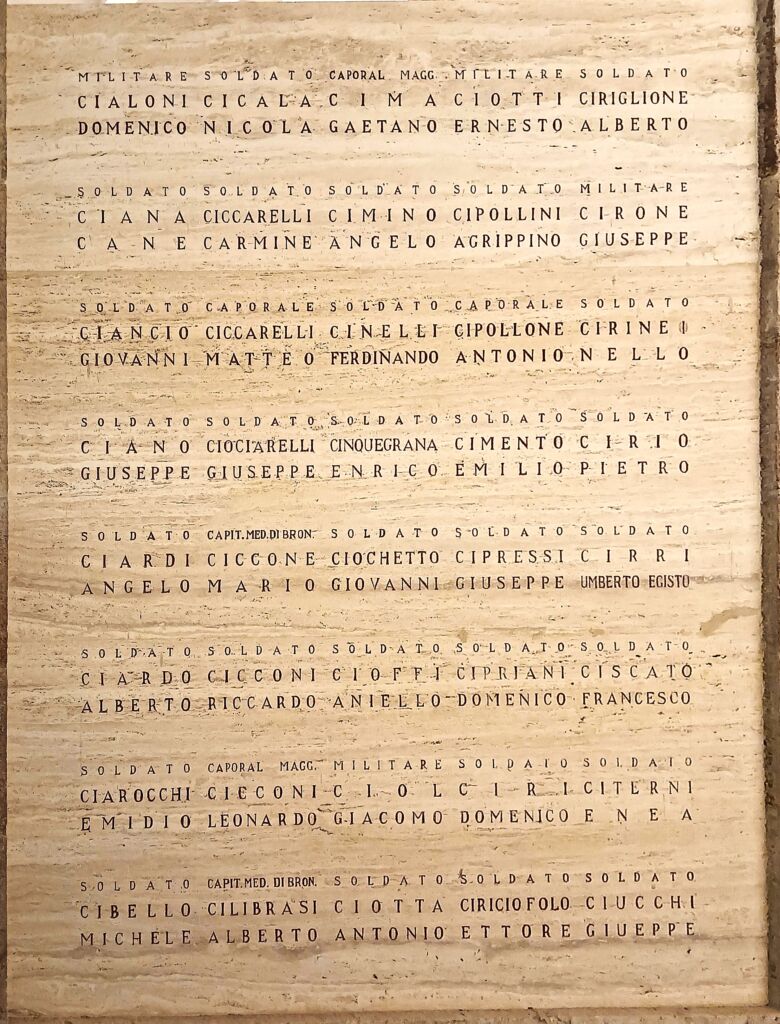 MILITARE SOLDATO CAPORAL MAGG. MILITARE SOLDATO
CIALONI CICALA CIMA CIOTTI CIRIGLIONE
DOMENICO NICOLA GAETANO ERNESTO ALBERTO
SOLDATO SOLDATO SOLDATO SOLDATO MILITARE
CIANA CICCARELLI CIMINO CIPOLLINI CIRONE
CANE CARMINE ANGELO AGRIPPINO GIUSEPPE
SOLDATO CAPORALE SOLDATO CAPORALE SOLDATO
CIANCIO CICCARELLI CINELLI CIPOLLONE CIRINEI
GIOVANNI MATTEO FERDINANDO ANTONIO NELLO
SOLDATO SOLDATO SOLDATO SOLDATO SOLDATO
CIANO CIOCIARELLI CINQUEGRANA CIMENTO CIRIO
GIUSEPPE GIUSEPPE ENRICO EMILIO PIETRO
SOLDATO CAPIT.MED.DI BRON. SOLDATO SOLDATO SOLDATO
CIARDI CICCONE CIOCHETTO CIPRESSI CIRRI
ANGELO MARIO GIOVANNI GIUSEPPE UMBERTO EGISTO
SOLDATO SOLDATO SOLDATO SOLDATO SOLDATO
CIARDO CICCONI CIOFFI CIPRIANI CISCATO
ALBERTO RICCARDO ANIELLO DOMENICO FRANCESCO
SOLDATO CAPORAL MAGG. MILITARE SOLDATO SOLDATO
CIAROCCHI CICCONI CIOL CIRI CITERNI
EMIDIO LEONARDO GIACOMO DOMENICO ENEA
SOLDATO CAPIT.MED. DI BRON. SOLDATO SOLDATO SOLDATO
CIBELLO CILIBRASI CIOTTA CIRICIOFOLO CIUCCHI
MICHELE ALBERTO ANTONIO ETTORE GIUEPPE